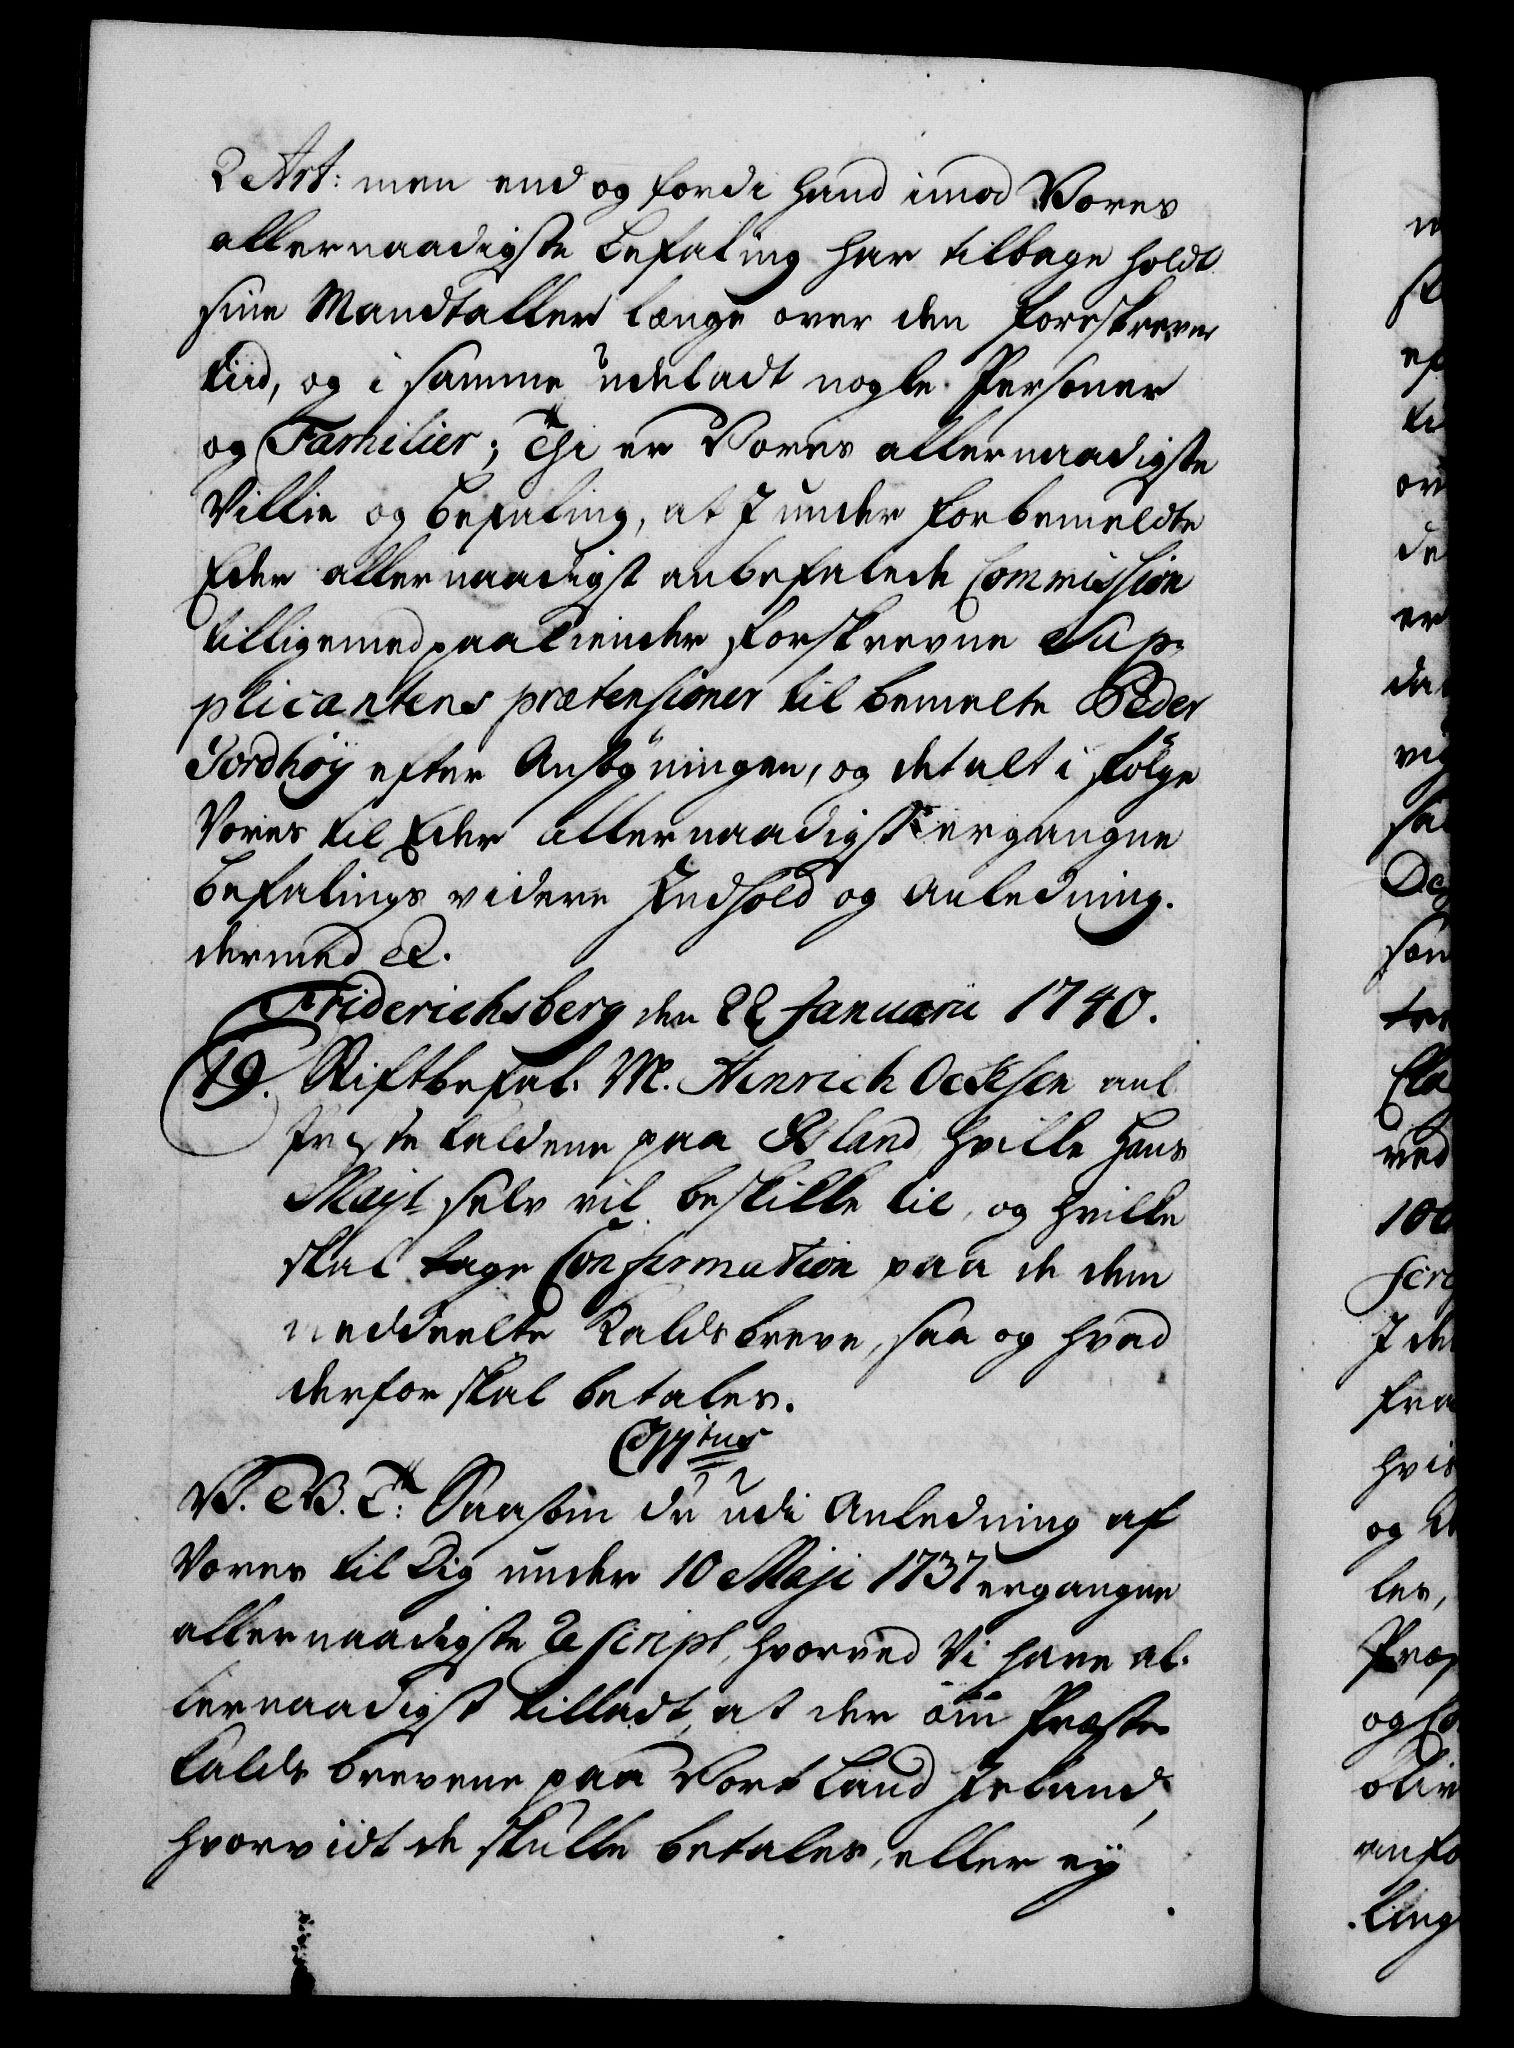 2 Art: men end og fordi hand imod Vores
allernaadigste Befaling har tilbage holdt
sine Mandtaller længe over den foreskrevne
tiid, og i samme udeladt nogle Personer
og Familier; Thi er Vores allernaadigste
Villie og Befaling, at I under forbemeldte
Eder allernaadigst anbefalede Commission
tilligemed paakiender forskrevne Sup-
plicantens prætensioner til bemelte Peder
Jordhøy efter Ansøgningen, og det alt i følge
Vores til Eder allernaadigst ergangne
Befalings videre Indhold og Anledning.
dermed etc.
Friderichsberg den 22 Januarii 1740.
19. Stiftbefal. M. Henrich Ocksen anl.
Præste kaldene paa Island, hvilke Hans
Mayt selv vil beskikke til, og hvilke
skal tage Confirmation paa de dem
meddeelte Kaldsbreve, saa og hvad
derfor skal betales.
V. G. T: Saasom du udi Anledning af
Vores til Dig under 10 Maji 1737 ergangne
allernaadigste Rescript, hvorved Vi have al-
lernaadigst tilladt, at der om Præste
Kalds brevene paa Vort Land Island,
hvorvidt de skulle betales, eller ey